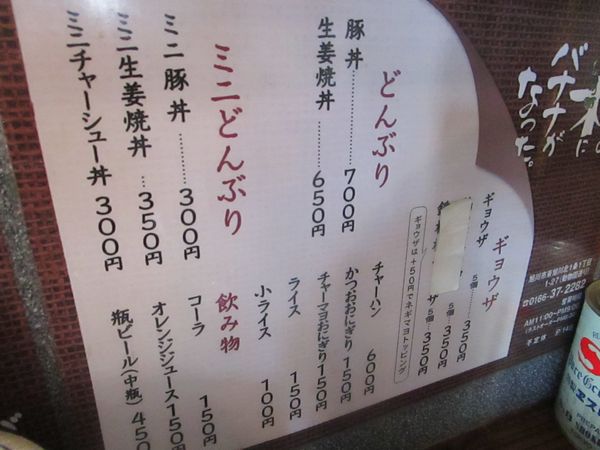 バナナが
なった。
ギョウザ
ギョウザ 5個…350円
5個…350円
ザ 5個…350円
ギョウザは+50円でネギマヨトッピング
どんぶり
豚丼…………700円
生姜焼丼…………650円
ミニどんぶり
ミニ豚丼………300円
ミニ生姜焼丼…350円
ミニチャーシュー丼300円
チャーハン 600円
かつおおにぎり150円
チャーマヨおにぎり150円
ライス 150円
小ライス 100円
飲み物
コーラ 150円
オレンジジュース150円
瓶ビール(中瓶)450
旭川市東旭川北1条1丁目
☎0166-37-2282
営業時間
AM11:00~PM8:0
不定休